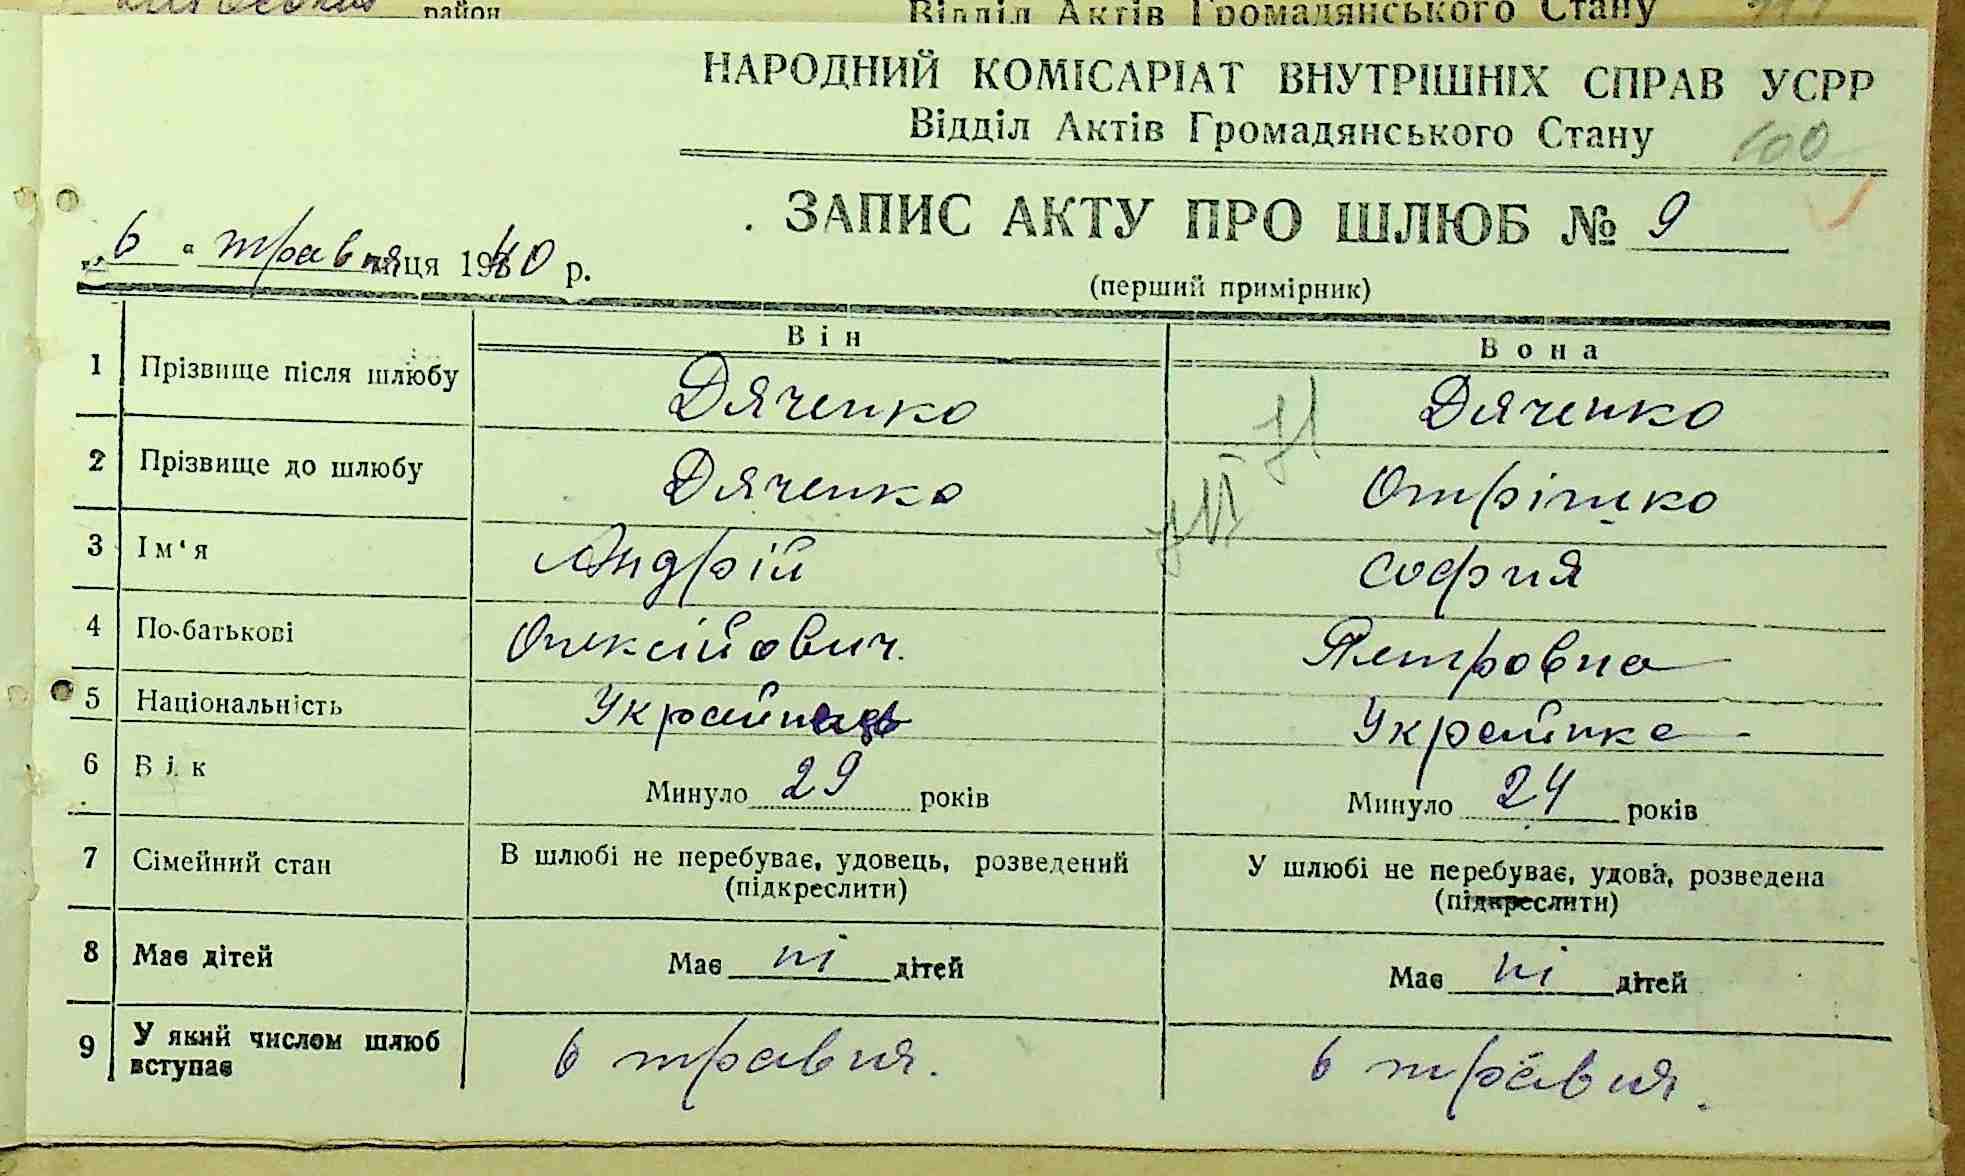 район Відділ Актів Громадянського Стану
НАРОДНИЙ КОМІСАРІАТ ВНУТРІШНІХ СПРАВ УСРР
Відділ Актів Громадянського Стану 100
ЗАПИС АКТУ ПРО ШЛЮБ № 9
„6 “ травня місяця 1940 р.
(перший примірник)
Він Вона
1 Прізвище після шлюбу Дяченко Дяченко
2 Прізвище до шлюбу Дяченко Отрішко
3 Ім‘я Андрій София
4 По-батькові Олексійович. Петровна
5 Національність Українець Українка
6 Вік Минуло 29 років Минуло 24 років
7 Сімейний стан В шлюбі не перебуває, удовець, розведений У шлюбі не перебуває, удова, розведена
(підкреслити) (підкреслити)
8 Має дітей Має ні дітей Має ні дітей
9 У який числом шлюб вступає 6 травня. 6 травня.